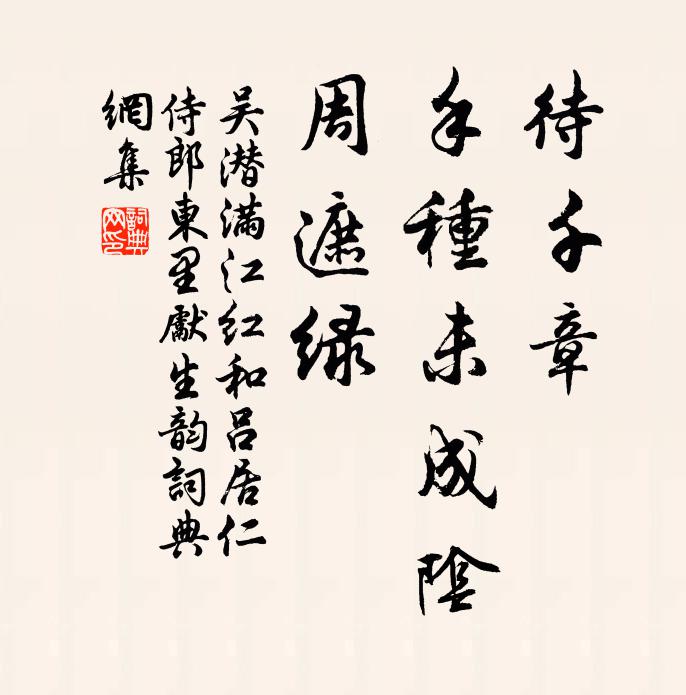 待千章
手種未成陰
周遮綠
吴潛滿江紅和吕居仁
侍郎東里獻生韵詞典
網集
詞典
网印